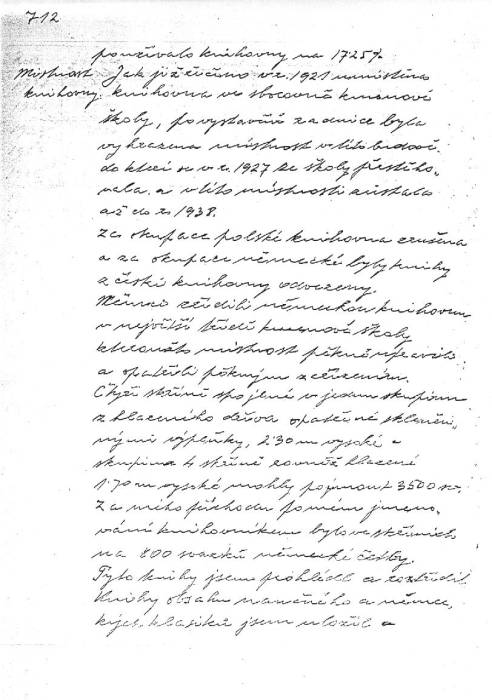 712
používalo knihovny na 1725%.
Místnost Jak již řečeno v r. 1921 umístěna
knihovny. knihovna ve sborovně kmenové
školy, po vystavění radnice byla
vyhrazena místnost v této budově
do které se v r. 1927 ze školy přestěho-
vala a v této místnosti zůstala
až do r. 1938.
Za okupace polské knihovna zrušena
a za okupace německé byly knihy
z české knihovny odvezeny.
Němci zřídili německou knihovnu
v největší třídě kmenové školy
kteroužto místnost pěkně upravili
a opatřili pěkným zařízením.
Čtyři skříně spojené v jednu skupinu
z hlazeného dřeva opatřené skleněn-
nými výplňky, 2'30 m vysoké a
skupina 4 skříně rovněž hlazené
1.70 m vysoké mohly pojmout 3500 sv.
Za mého příchodu po mém jmeno-
vání knihovníkem bylo ve skříních
na 800 svazků německé četby.
Tyto knihy jsem prohlédl a roztřídil
Knihy obsahu naučného a němec-
kých klasiků jsem uložil a